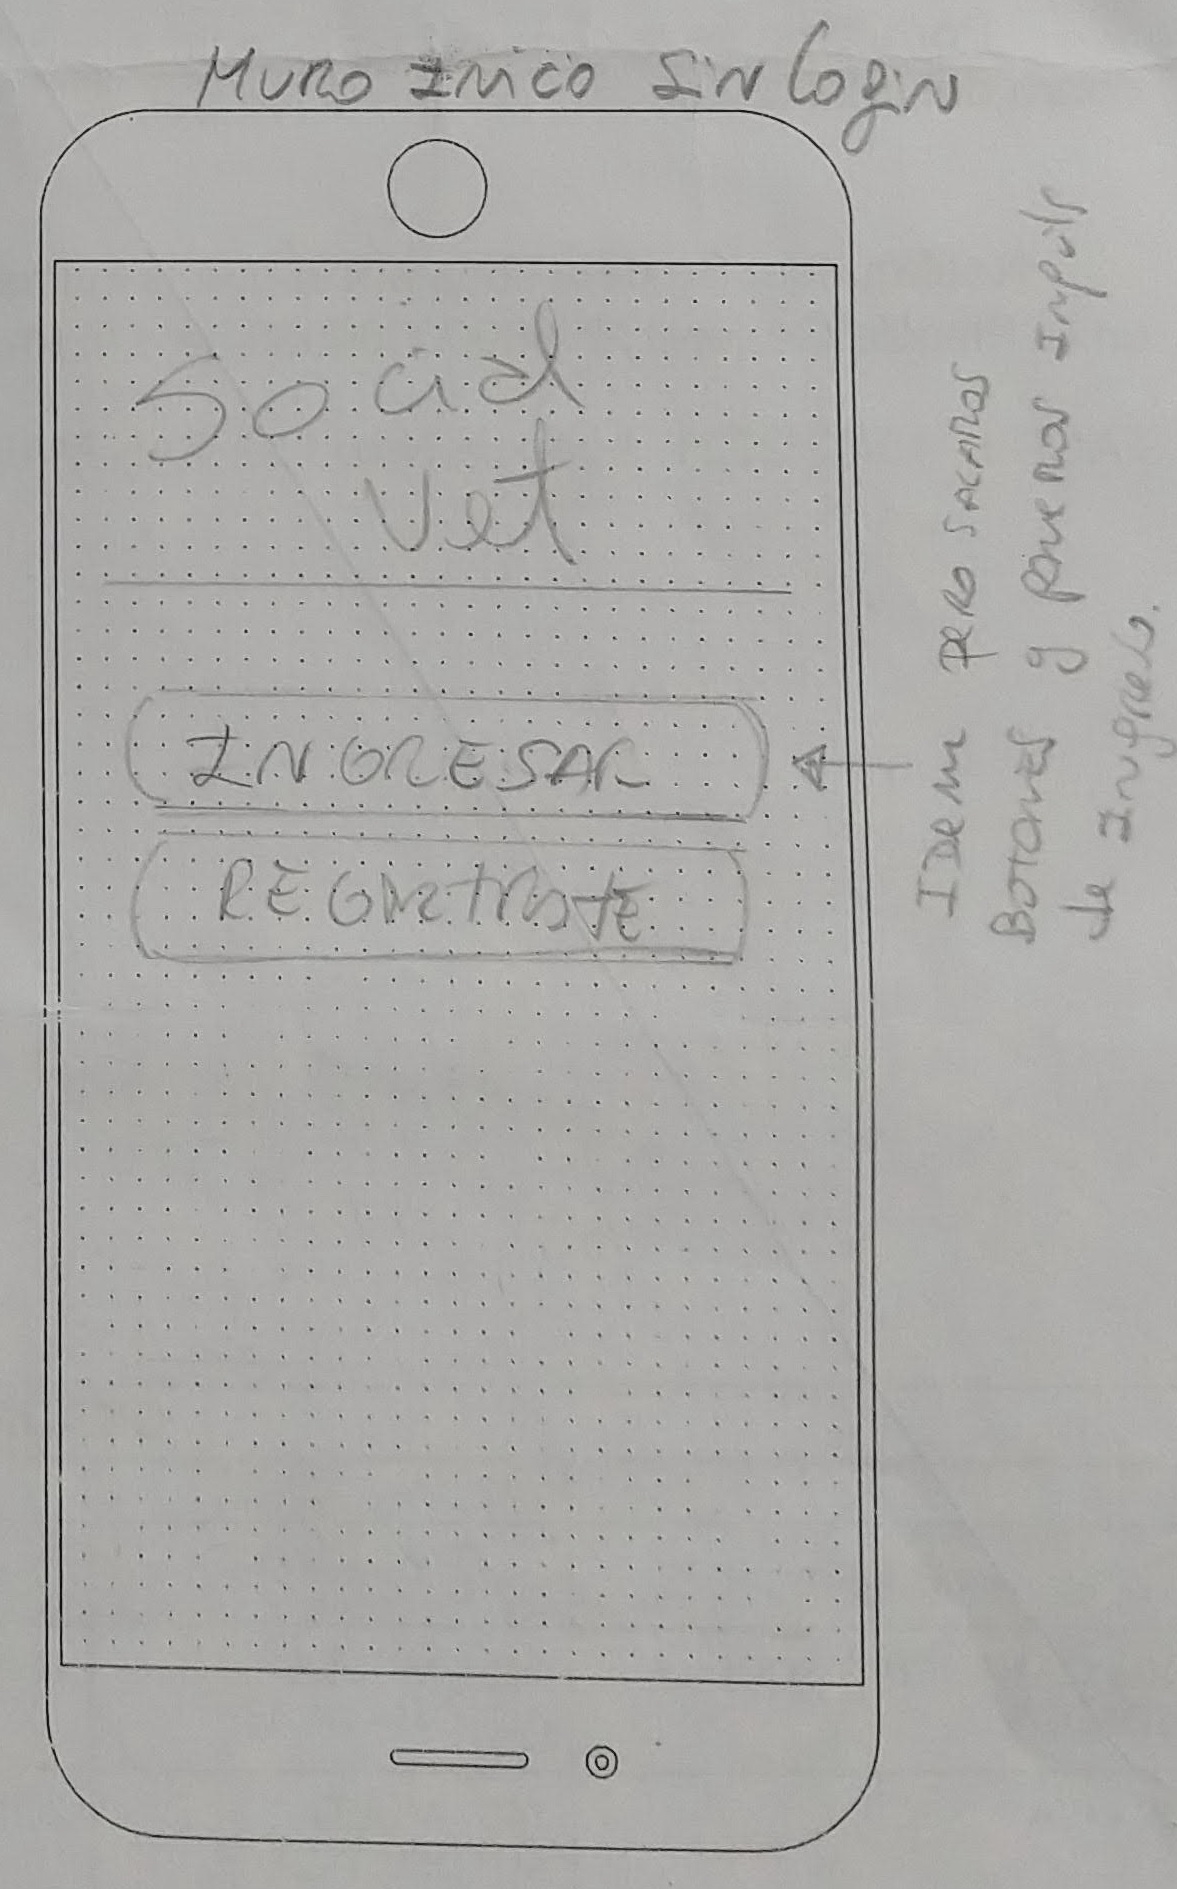 MURO INICO SIN LOGIN
Social
Vet
INGRESAR
REGISTRATE
IDEM PERO SACAMOS
BOTONES y PONEMOS INPUTS
de INGRESO.